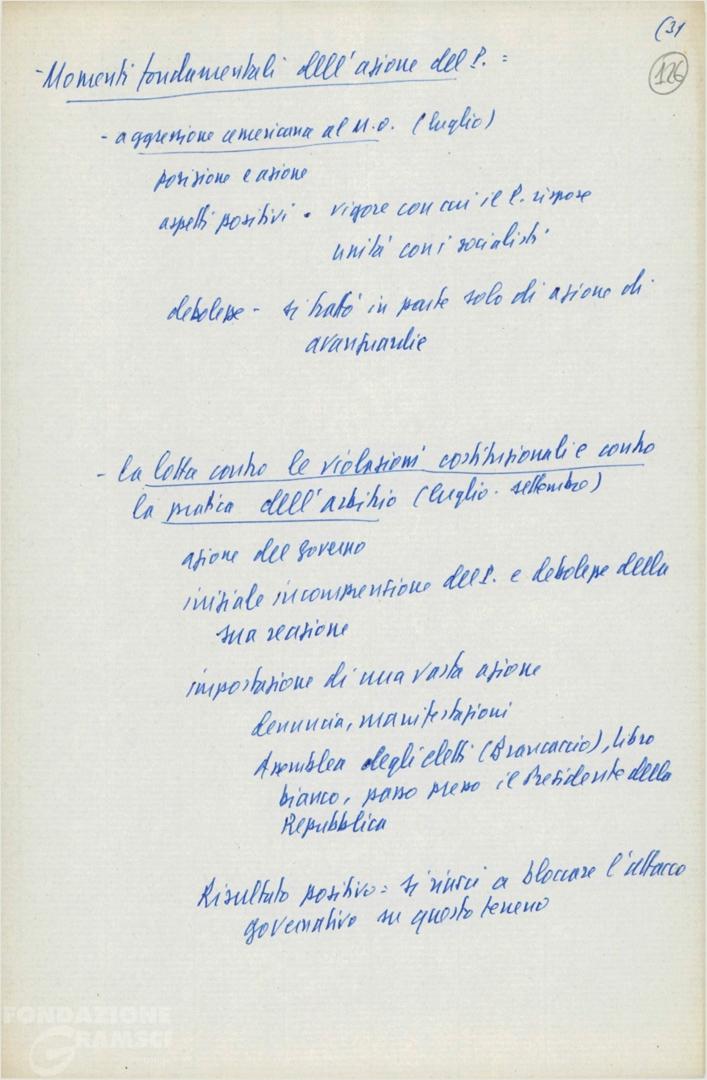 (31
126
- Momenti fondamentali dell'azione del P. =
- aggressione americana al M.O. (luglio)
posizione e azione
aspetti positivi - vigore con cui il P. rispose
unità con i socialisti
debolezze - si trattò in parte solo di azione di
avanguardie
- La lotta contro le violazioni costituzionali e contro
la pratica dell'arbitrio (luglio - settembre)
azione del governo
iniziale incomprensione del P. e debolezze della
sua reazione
impostazione di una vasta azione
denuncia, manifestazioni
Assemblea degli eletti (Brancaccio), libro
bianco, passo presso il Presidente della
Repubblica
Risultato positivo = si riuscì a bloccare l'attacco
governativo su questo terreno
FONDAZIONE
GRAMSCI